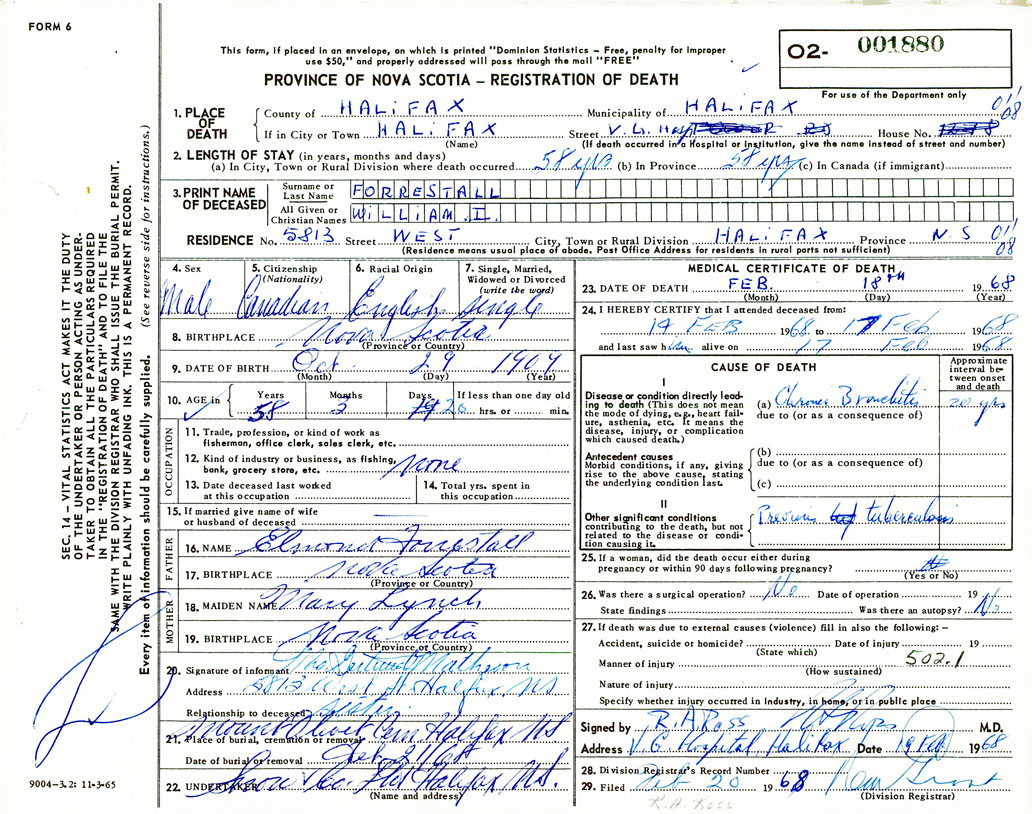 FORM 6
This form, if placed in an envelope, on which is printed "Dominion Statistics – Free, penalty for improper
use $50," and properly addressed will pass through the mail "FREE"
O2- 001880
PROVINCE OF NOVA SCOTIA – REGISTRATION OF DEATH
For use of the Department only
1. PLACE OF DEATH
County of HALIFAX Municipality of HALIFAX
If in City or Town HALIFAX Street V. G. Hosp House No.
(Name) (If death occurred in a Hospital or Institution, give the name instead of street and number)
2. LENGTH OF STAY (in years, months and days)
(a) In City, Town or Rural Division where death occurred 58 yrs (b) In Province 58 yrs (c) In Canada (if immigrant)
3. PRINT NAME OF DECEASED
Surname or Last Name FORRESTALL
All Given or Christian Names WILLIAM. I.
RESIDENCE No. 5813 Street WEST City, Town or Rural Division HALIFAX Province N. S
(Residence means usual place of abode. Post Office Address for residents in rural parts not sufficient)
4. Sex 5. Citizenship (Nationality) 6. Racial Origin 7. Single, Married, Widowed or Divorced (write the word)
Male Canadian English single
8. BIRTHPLACE Nova Scotia
(Province or Country)
9. DATE OF BIRTH Oct 29 1909
(Month) (Day) (Year)
10. AGE in Years Months Days If less than one day old
58 3 20 hrs. or min.
OCCUPATION
11. Trade, profession, or kind of work as
fisherman, office clerk, sales clerk, etc.
12. Kind of industry or business, as fishing,
bank, grocery store, etc. none
13. Date deceased last worked
at this occupation
14. Total yrs. spent in
this occupation
15. If married give name of wife
or husband of deceased
FATHER
16. NAME Elmond Forrestall
17. BIRTHPLACE Nova Scotia
(Province or Country)
MOTHER
18. MAIDEN NAME Mary Lynch
19. BIRTHPLACE Nova Scotia
(Province or Country)
20. Signature of informant Mrs Gertrude Matheson
Address 5813 West St Halifax NS
Relationship to deceased Sister
21. Place of burial, cremation or removal Mount Olivet Cem Halifax NS
Date of burial or removal
22. UNDERTAKER Snow & Co. Ltd Halifax NS.
(Name and address)
MEDICAL CERTIFICATE OF DEATH
23. DATE OF DEATH FEB. 18TH 1968
(Month) (Day) (Year)
24. I HEREBY CERTIFY that I attended deceased from:
14 FEB 1968 to 17 Feb 1968
and last saw him alive on 17 Feb 1968
CAUSE OF DEATH
Approximate interval between onset and death
I
Disease or condition directly leading to death (This does not mean the mode of dying, e.g., heart failure, asthenia, etc. It means the disease, injury, or complication which caused death.)
(a) Chronic Bronchitis 20 yrs
due to (or as a consequence of)
Antecedent causes
Morbid conditions, if any, giving rise to the above cause, stating the underlying condition last.
(b)
due to (or as a consequence of)
(c)
II
Other significant conditions contributing to the death, but not related to the disease or condition causing it.
Previous tuberculosis
25. If a woman, did the death occur either during
pregnancy or within 90 days following pregnancy?
(Yes or No)
26. Was there a surgical operation? No Date of operation 19
State findings Was there an autopsy? No
27. If death was due to external causes (violence) fill in also the following: –
Accident, suicide or homicide? Date of injury 19
(State which)
Manner of injury 502.1
(How sustained)
Nature of injury
Specify whether injury occurred in industry, in home, or in public place
Signed by R. A Ross M.D.
Address V. G. Hospital Halifax Date 19 Feb 1968
28. Division Registrar's Record Number
29. Filed Feb 20 1968
(Division Registrar)
R. A. Ross
SEC. 14 – VITAL STATISTICS ACT MAKES IT THE DUTY
OF THE UNDERTAKER OR PERSON ACTING AS UNDER-
TAKER TO OBTAIN ALL THE PARTICULARS REQUIRED
IN THE "REGISTRATION OF DEATH" AND TO FILE THE
SAME WITH THE DIVISION REGISTRAR WHO SHALL ISSUE THE BURIAL PERMIT.
WRITE PLAINLY WITH UNFADING INK. THIS IS A PERMANENT RECORD.
Every item of information should be carefully supplied. (See reverse side for instructions.)
9004–3.2: 11-3-65